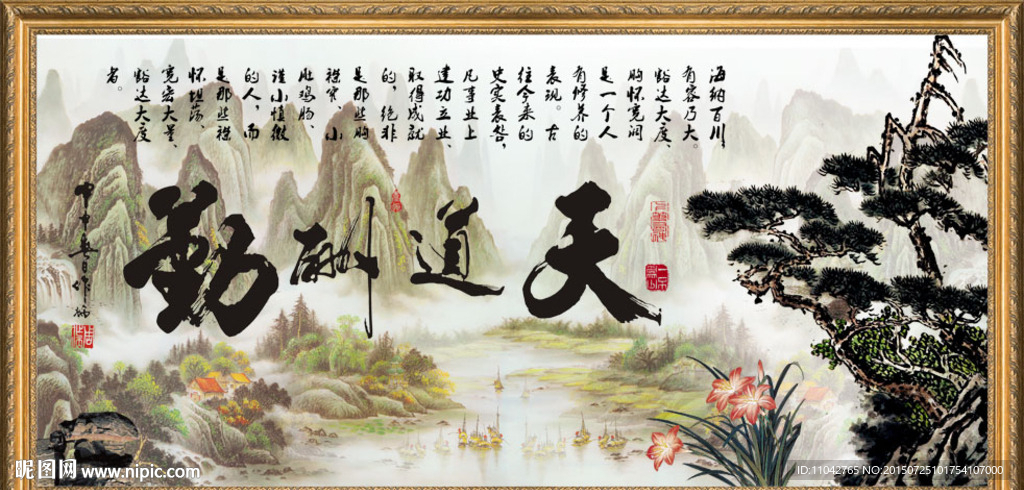 海纳百川，
有容乃大。
豁达大度、
胸怀宽阔
是一个人
有修养的
表现。古
往今来的
史实表明，
凡事业上
建功立业、
取得成就
的，绝非
是那些胸
襟窄、小
肚鸡肠、
谨小慎微
的人，而
是那些襟
怀坦荡、
宽宏大量、
豁达大度
者。
天道酬勤
昵图网 www.nipic.com
ID:11042765 NO:20150725101754107000